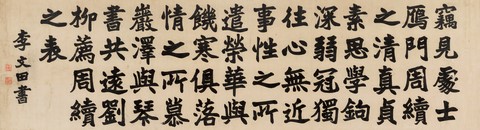 竊見處士
鴈門周續
之清真貞
素思學鉤
深弱冠獨
往心無近
事性之所
遣榮華與
饑寒俱落
情之所慕
巖澤與琴
書共遠劉
柳薦周續
之表
李文田書